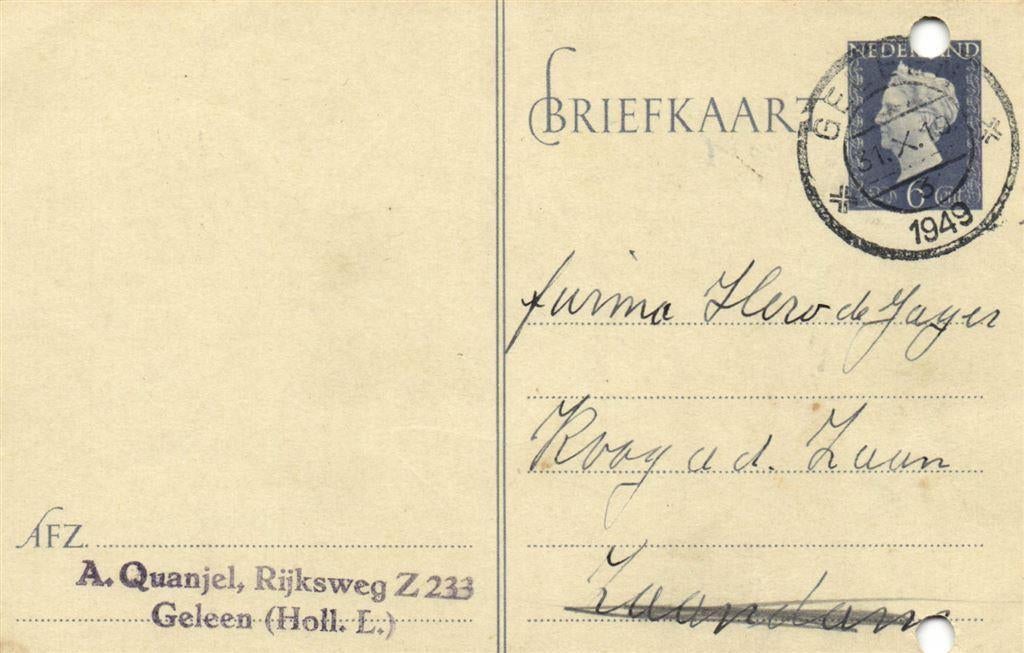 BRIEFKAART
NEDERLAND
GE
31.X.19
3
1949
6 Cent
firma Hero de Jager
Koog a d. Zaan
Zaandam
AFZ.
A. Quanjel, Rijksweg Z 233
Geleen (Holl. L.)